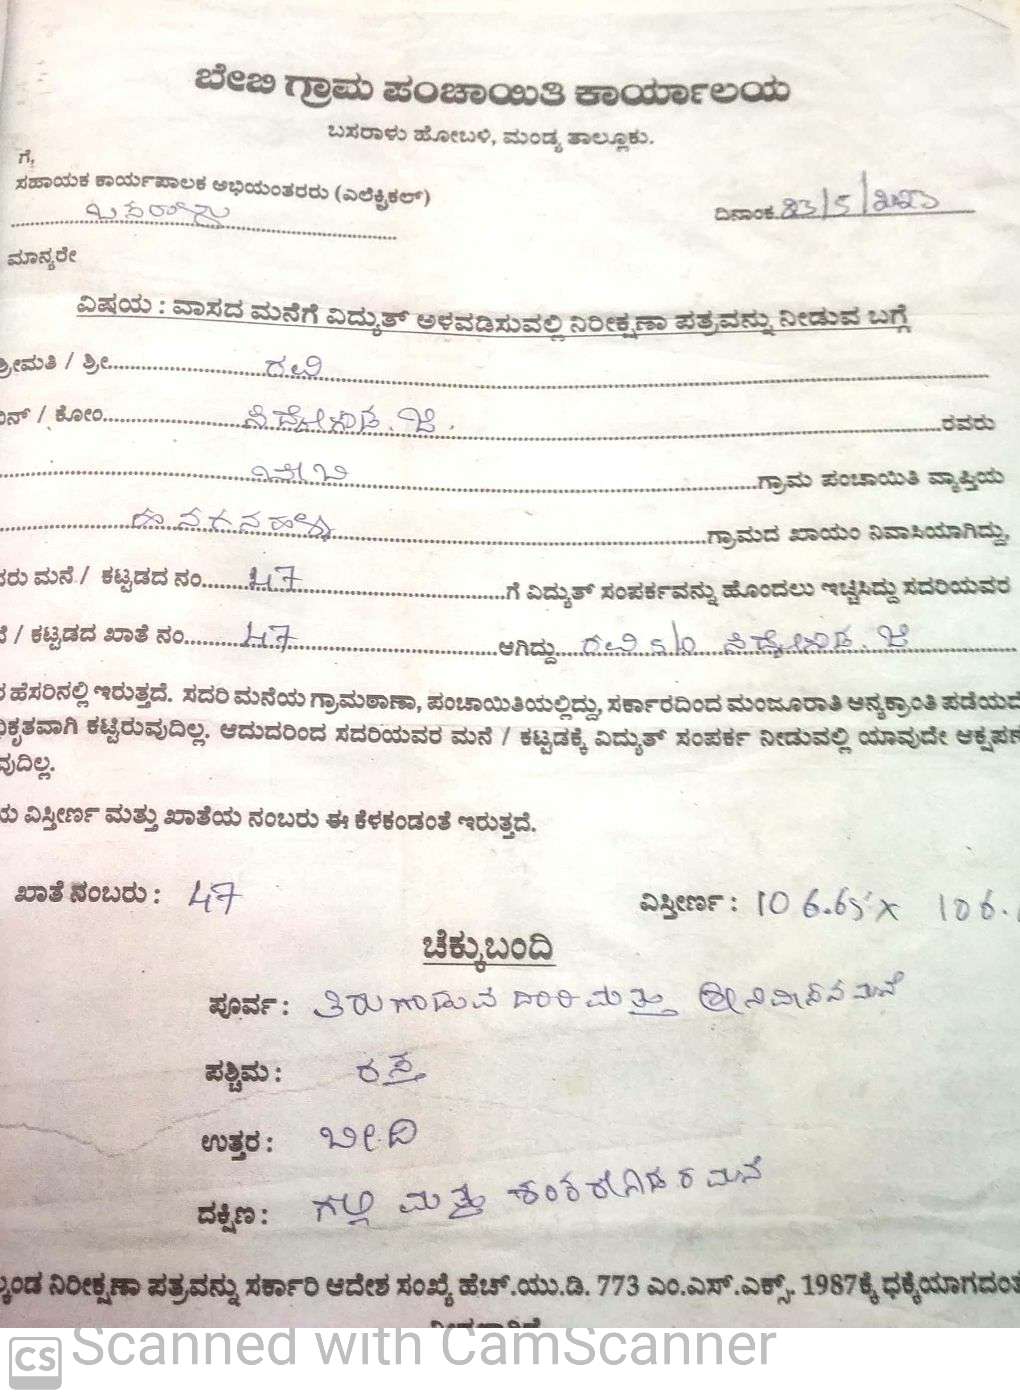 ಬೇಬಿ ಗ್ರಾಮ ಪಂಚಾಯಿತಿ ಕಾರ್ಯಾಲಯ
ಬಸರಾಳು ಹೋಬಳಿ, ಮಂಡ್ಯ ತಾಲ್ಲೂಕು.
ಗೆ,
ಸಹಾಯಕ ಕಾರ್ಯಪಾಲಕ ಅಭಿಯಂತರರು (ಎಲೆಕ್ಟ್ರಿಕಲ್)
ಬಸರಾಳು
ದಿನಾಂಕ 23/5/2023
ಮಾನ್ಯರೇ
ವಿಷಯ : ವಾಸದ ಮನೆಗೆ ವಿದ್ಯುತ್ ಅಳವಡಿಸುವಲ್ಲಿ ನಿರೀಕ್ಷಣಾ ಪತ್ರವನ್ನು ನೀಡುವ ಬಗ್ಗೆ
ಶ್ರೀಮತಿ / ಶ್ರೀ ರವಿ
ಬಿನ್ / ಕೋಂ ಸಿದ್ದೇಗೌಡ . ಜೆ . ರವರು
ಬೇಬಿ ಗ್ರಾಮ ಪಂಚಾಯಿತಿ ವ್ಯಾಪ್ತಿಯ
ಹುನಗನಹಳ್ಳಿ ಗ್ರಾಮದ ಖಾಯಂ ನಿವಾಸಿಯಾಗಿದ್ದು,
ಮನೆ / ಕಟ್ಟಡದ ನಂ 47 ಗೆ ವಿದ್ಯುತ್ ಸಂಪರ್ಕವನ್ನು ಹೊಂದಲು ಇಚ್ಛಿಸಿದ್ದು ಸದರಿಯವರ
/ ಕಟ್ಟಡದ ಖಾತೆ ನಂ 47 ಆಗಿದ್ದು ರವಿ s/o ಸಿದ್ದೇಗೌಡ . ಜೆ
ಹೆಸರಿನಲ್ಲಿ ಇರುತ್ತದೆ. ಸದರಿ ಮನೆಯ ಗ್ರಾಮಠಾಣಾ, ಪಂಚಾಯಿತಿಯಲ್ಲಿದ್ದು, ಸರ್ಕಾರದಿಂದ ಮಂಜೂರಾತಿ ಅನ್ಯಕ್ರಾಂತಿ ಪಡೆಯದೆ
ಕಟ್ಟಿರುವುದಿಲ್ಲ. ಆದುದರಿಂದ ಸದರಿಯವರ ಮನೆ / ಕಟ್ಟಡಕ್ಕೆ ವಿದ್ಯುತ್ ಸಂಪರ್ಕ ನೀಡುವಲ್ಲಿ ಯಾವುದೇ ಆಕ್ಷಪಣ
ವುದಿಲ್ಲ.
ಯ ವಿಸ್ತೀರ್ಣ ಮತ್ತು ಖಾತೆಯ ನಂಬರು ಈ ಕೆಳಕಂಡಂತೆ ಇರುತ್ತದೆ.
ಖಾತೆ ನಂಬರು : 47
ವಿಸ್ತೀರ್ಣ : 106.65 x 106.
ಚೆಕ್ಕುಬಂದಿ
ಪೂರ್ವ : ತಿರುಗಾಡುವ ದಾರಿ ಮತ್ತು ಶ್ರೀನಿವಾಸನ ಮನೆ
ಪಶ್ಚಿಮ : ರಸ್ತೆ
ಉತ್ತರ : ಬೀದಿ
ದಕ್ಷಿಣ : ಗಲ್ಲಿ ಮತ್ತು ಶಂಕರೇಗೌಡರ ಮನೆ
ನಿರೀಕ್ಷಣಾ ಪತ್ರವನ್ನು ಸರ್ಕಾರಿ ಆದೇಶ ಸಂಖ್ಯೆ ಹೆಚ್.ಯು.ಡಿ. 773 ಎಂ.ಎಸ್.ಎಕ್ಸ್. 1987ಕ್ಕೆ ಧಕ್ಕೆಯಾಗದಂತೆ
CS Scanned with CamScanner